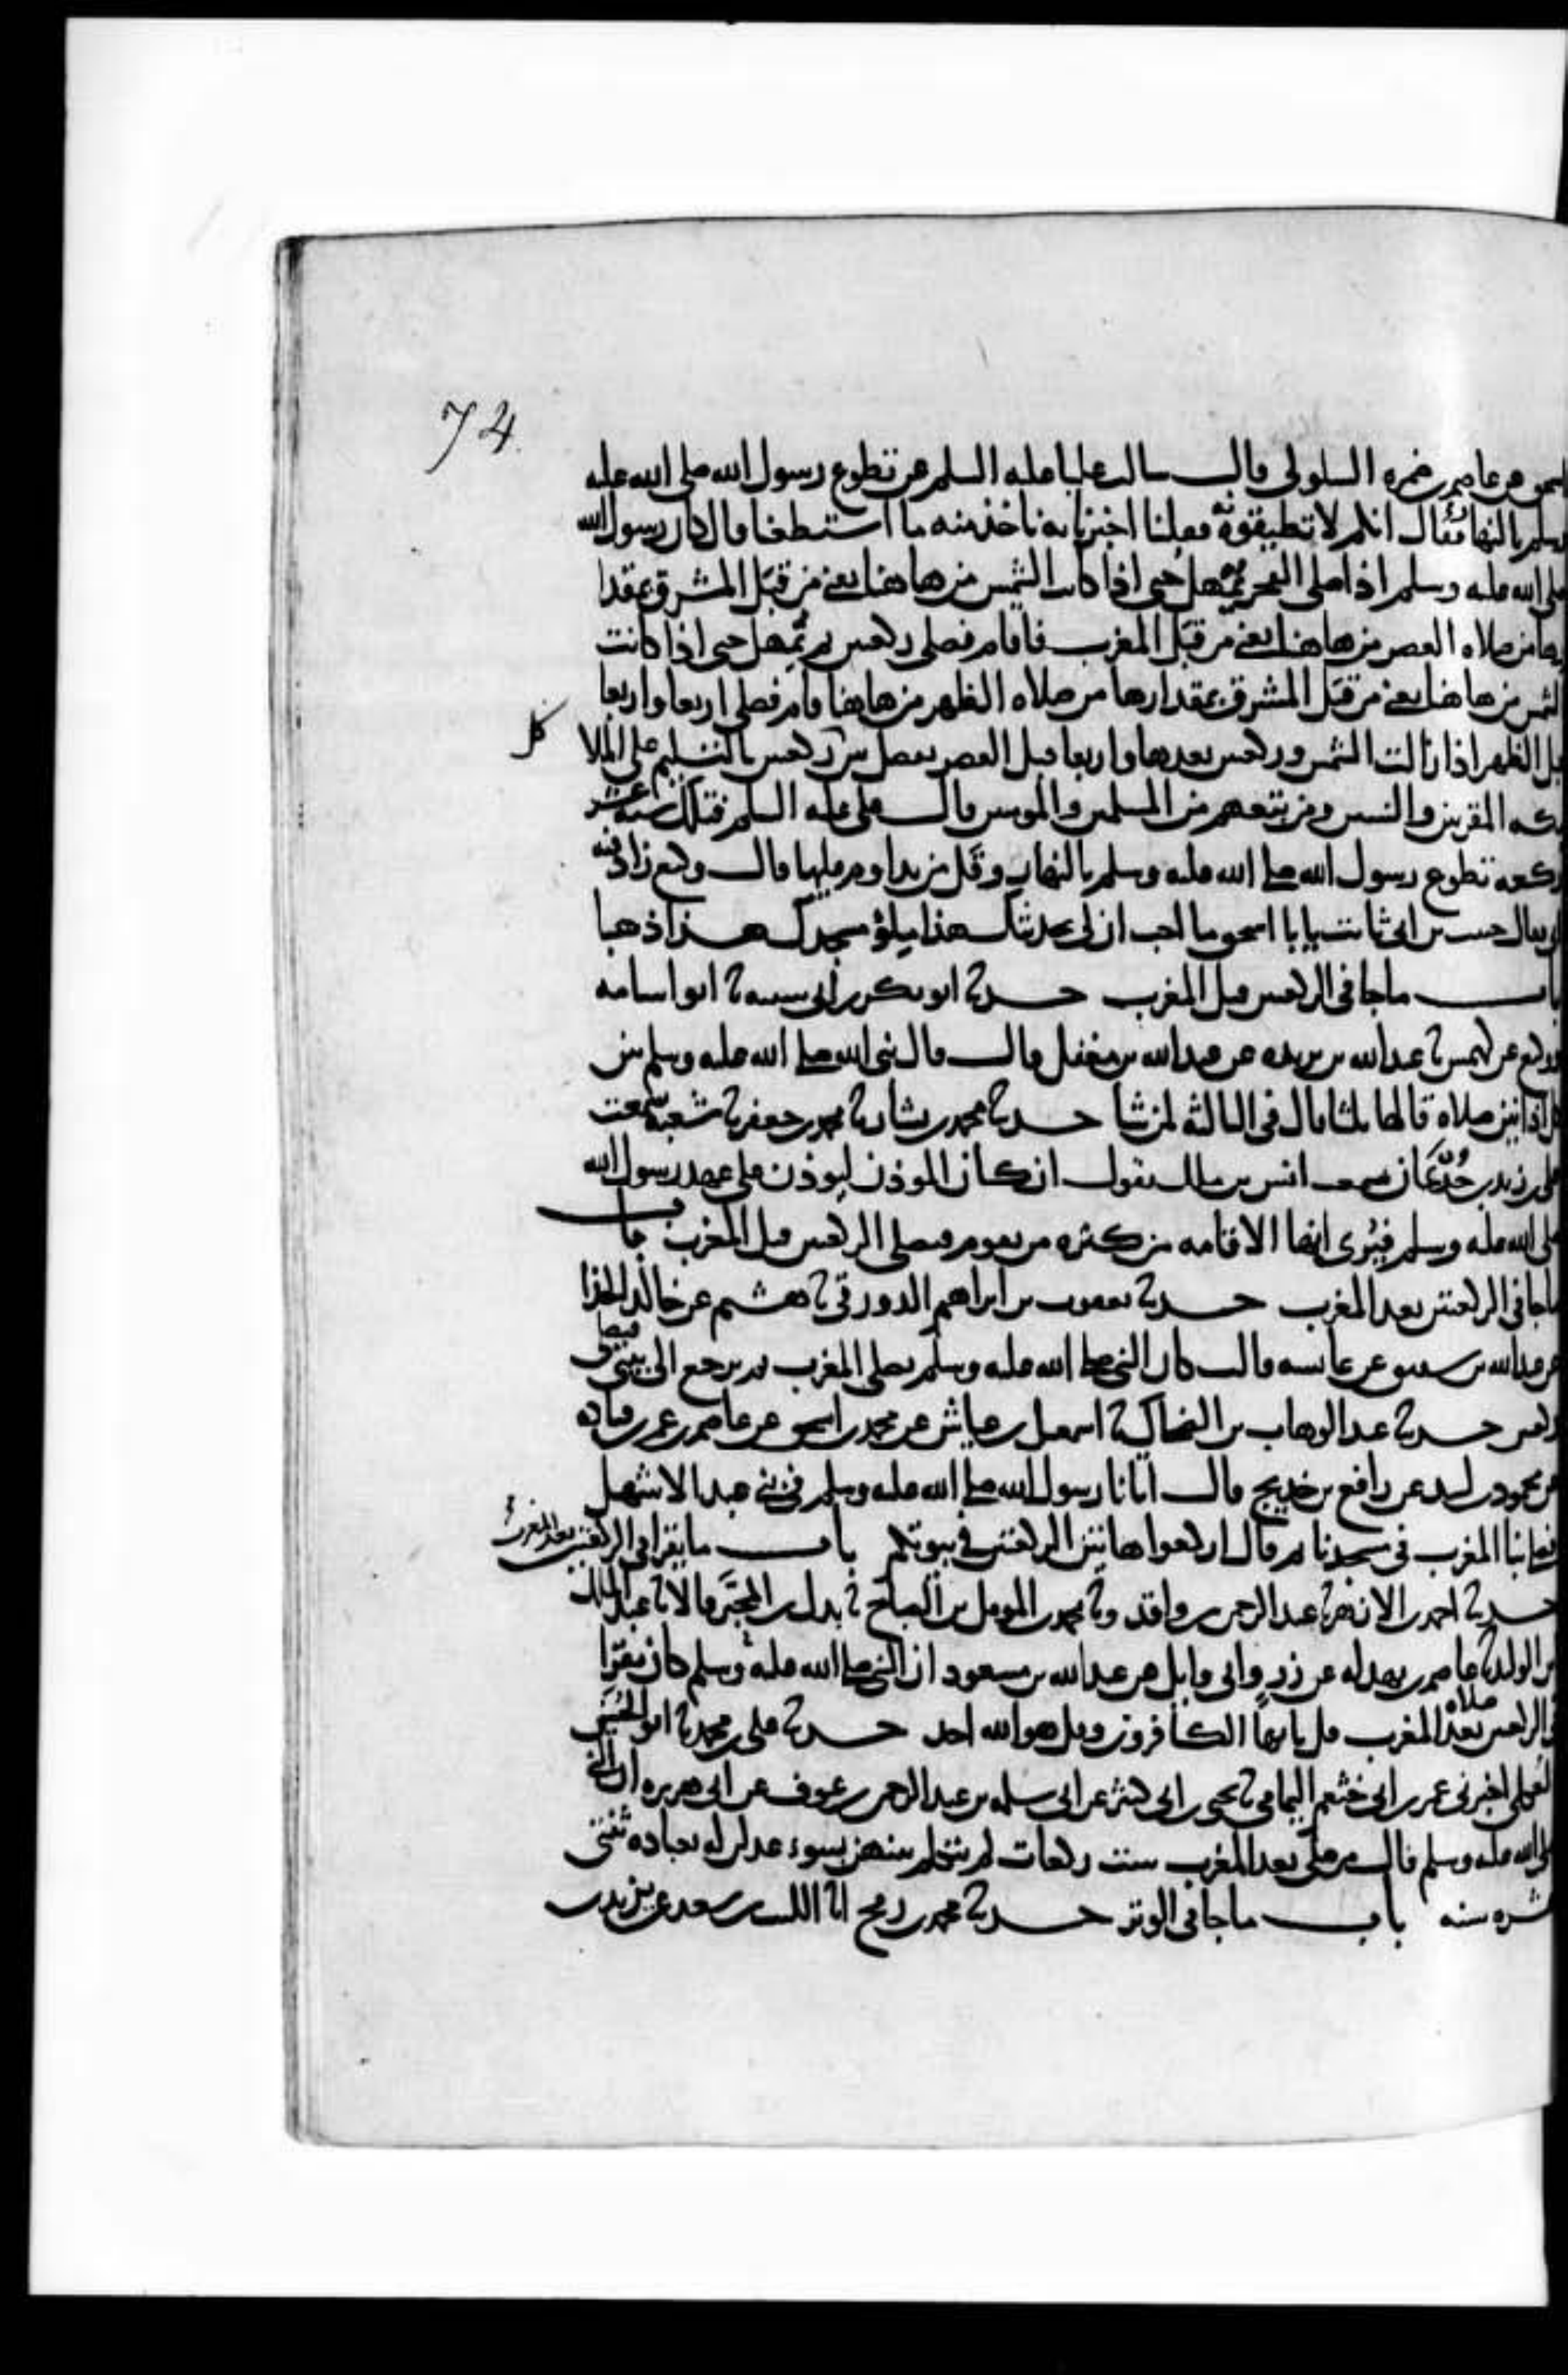 74
اسحق عن عاصم بن ضمره السلولي قال سالت عليا عليه السلم عن تطوع رسول الله صلى الله عليه
وسلم بالنهار فقال انكم لا تطيقونه فقلنا اخبرنا به ناخذ منه ما استطعنا قال كان رسول الله
صلى الله عليه وسلم اذا صلى الفجر يمهل حتى اذا كانت الشمس من هاهنا يعني من قبل المشرق بمقدا
رها من صلاه العصر من هاهنا يعني من قبل المغرب فاقام فصلى ركعتين ثم يمهل حتى اذا كانت
الشمس من هاهنا يعني من قبل المشرق بمقدارها من صلاه الظهر من هاهنا قام فصلى اربعا واربعا
قبل الظهر اذا زالت الشمس وركعتين بعدها واربعا قبل العصر يفصل بين كل ركعتين بالتسليم على الملا
يكه المقربين والنبيين ومن يتبعهم من المسلمين والمومنين قال علي عليه السلم فتلك سته عشر
ركعه تطوع رسول الله صلى الله عليه وسلم بالنهار وقل من يداوم عليها قال وكيع زاد فيه
ابي فقال حبيب بن ابي ثابت يابا اسحق ما احب ان لي بحديثك هذا ملؤ مسجدك هذا ذهبا
باب ما جا في الركعتين قبل المغرب حدثنا ابو بكر بن ابي شيبه نا ابو اسامه
ووكيع عن كهمس نا عبد الله بن بريده عن عبد الله بن مغفل قال قال نبي الله صلى الله عليه وسلم بين
كل اذانين صلاه قالها ثلثا قال في الثالثه لمن شا حدثنا محمد بن بشار نا محمد بن جعفر نا شعبه سمعت
علي بن زيد بن جدعان سمعت انس بن مالك يقول ان كان الموذن ليوذن على عهد رسول الله
صلى الله عليه وسلم فيرى انها الاقامه من كثره من يقوم فيصلي الركعتين قبل المغرب باب
ما جا في الركعتين بعد المغرب حدثنا يعقوب بن ابراهيم الدورقي نا هشيم عن خالد الحذا
عن عبد الله بن شقيق عن عايشه قالت كان النبي صلى الله عليه وسلم يصلي المغرب ثم يرجع الى بيتي فيصلي
ركعتين حدثنا عبد الوهاب بن الضحاك نا اسمعيل بن عياش عن محمد بن اسحق عن عاصم بن عمر بن قتاده
عن محمود بن لبيد عن رافع بن خديج قال اتانا رسول الله صلى الله عليه وسلم في بني عبد الاشهل
فصلى بنا المغرب في مسجدنا ثم قال اركعوا هاتين الركعتين في بيوتكم باب ما يقرا في الركعتين بعد المغرب
حدثنا احمد بن الازهر نا عبد الرحمن بن واقد ونا محمد بن المومل بن الصباح نا بدل بن المحبر قالا نا عبد الملك
بن الوليد نا عاصم بن بهدله عن زر وابي وايل عن عبد الله بن مسعود ان النبي صلى الله عليه وسلم كان يقرا
في الركعتين بعد صلاه المغرب قل يا ايها الكافرون وقل هو الله احد حدثنا علي بن محمد نا ابو الحسين
العكلي اخبرني عمر بن ابي خثعم اليمامي نا يحيى بن ابي كثير عن ابي سلمه بن عبد الرحمن بن عوف عن ابي هريره ان النبي
صلى الله عليه وسلم قال من صلى بعد المغرب ست ركعات لم يتكلم بينهن بسوء عدلن له بعباده ثنتي
عشره سنه باب ما جا في الوتر حدثنا محمد بن رمح انا الليث بن سعد عن يزيد بن